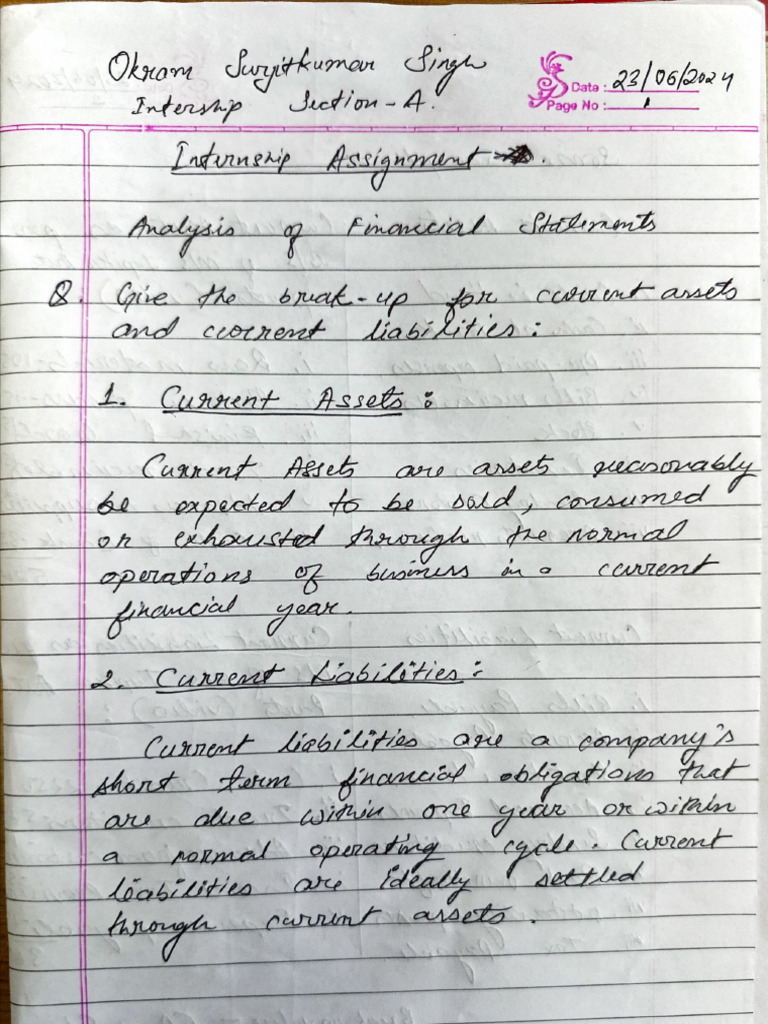 Okram Surjitkumar Singh
Date : 23/06/2024
Intership Section - A.
Page No : 1
Internship Assignment .
Analysis of Financial Statements
Q. Give the break-up for current assets
and current liabilities :
1. Current Assets :
Current Assets are assets reasonably
be expected to be sold, consumed
or exhausted through the normal
operations of business in a current
financial year.
2. Current Liabilities :
Current liabilities are a company's
short term financial obligations that
are due within one year or within
a normal operating cycle. Current
liabilities are ideally settled
through current assets.